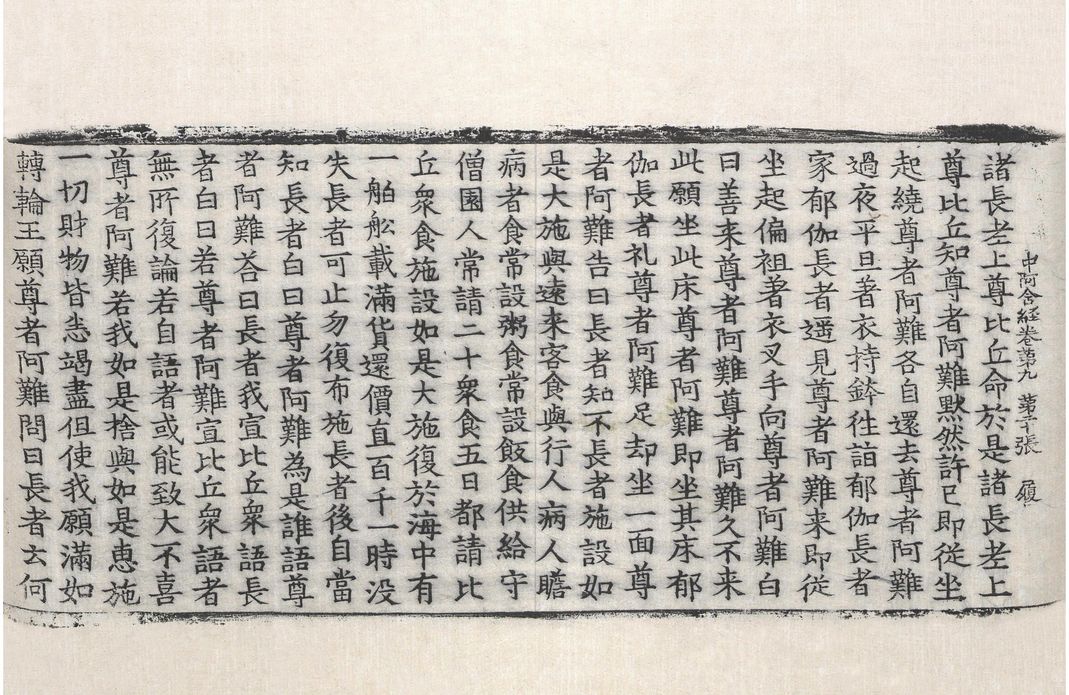 中阿含経卷第九 第張 履
諸長老上尊比丘命於是諸長老上
尊比丘知尊者阿難黙然許已即從坐
起繞尊者阿難各自還去尊者阿難
過夜平旦著衣持鉢徃詣郁伽長者
家郁伽長者遥見尊者阿難来即從
坐起偏袒著衣叉手向尊者阿難白
曰善来尊者阿難尊者阿難久不来
此願坐此床尊者阿難即坐其床郁
伽長者礼尊者阿難足却坐一面尊
者阿難告曰長者知不長者施設如
是大施與遠来客食與行人病人瞻
病者食常設粥食常設飯食供給守
僧園人常請二十衆食五日都請比
丘衆食施設如是大施復於海中有
一舶舩載滿貨還價直百千一時没
失長者可止勿復布施長者後自當
知長者白曰尊者阿難為是誰語尊
者阿難荅曰長者我宣比丘衆語長
者白曰若尊者阿難宣比丘衆語者
無所復論若自語者或能致大不喜
尊者阿難若我如是捨與如是惠施
一切財物皆悉竭盡但使我願滿如
轉輪王願尊者阿難問曰長者云何